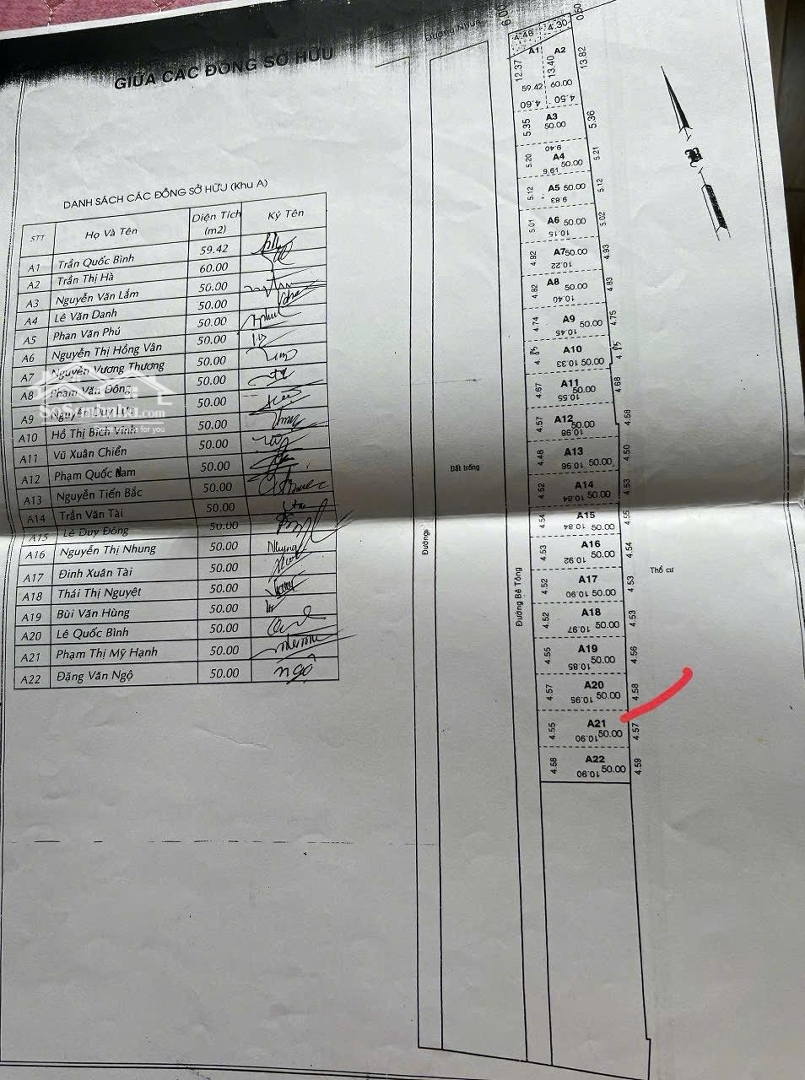 GIỮA CÁC ĐỒNG SỞ HỮU
DANH SÁCH CÁC ĐỒNG SỞ HỮU (Khu A)
STT Họ Và Tên Diện Tích (m2) Ký Tên
A1 Trần Quốc Bình 59.42
A2 Trần Thị Hà 60.00
A3 Nguyễn Văn Lắm 50.00
A4 Lê Văn Danh 50.00
A5 Phan Văn Phú 50.00
A6 Nguyễn Thị Hồng Vân 50.00
A7 Nguyễn Vương Thương 50.00
A8 Phạm Văn Đông 50.00
A9 Nguyễn Duy 50.00
A10 Hồ Thị Bích Vinh 50.00
A11 Vũ Xuân Chiển 50.00
A12 Phạm Quốc Nam 50.00
A13 Nguyễn Tiến Bắc 50.00
A14 Trần Văn Tài 50.00
A15 Lê Duy Đông 50.00
A16 Nguyễn Thị Nhung 50.00 Nhung
A17 Đinh Xuân Tài 50.00
A18 Thái Thị Nguyệt 50.00
A19 Bùi Văn Hùng 50.00
A20 Lê Quốc Bình 50.00
A21 Phạm Thị Mỹ Hạnh 50.00
A22 Đặng Văn Ngộ 50.00 ngộ
Đường Nhựa 6.00
4.46 4.30 0.50
12.37 A1 A2 13.82
13.40
59.42 60.00
4.60 4.50
5.35 A3 50.00 5.36
9.40
5.20 A4 50.00 5.21
9.61
5.12 A5 50.00 5.12
9.83
5.01 A6 50.00 5.02
10.15
4.92 A7 50.00 4.93
10.22
4.82 A8 50.00 4.83
10.40
4.74 A9 50.00 4.75
10.45
A10 50.00
10.33
4.67 A11 50.00 4.68
10.55
4.57 A12 50.00 4.58
10.98
4.48 A13 50.00 4.50
10.96
4.52 A14 50.00 4.53
10.84
4.54 A15 50.00 4.55
10.84
4.53 A16 50.00 4.54
10.92
4.52 A17 50.00 4.53
10.90
4.52 A18 50.00 4.53
10.97
4.55 A19 50.00 4.56
10.85
4.57 A20 50.00 4.58
10.95
4.55 A21 50.00 4.57
10.90
4.58 A22 50.00 4.59
10.90
Đường
Đất trống
Đường Bê Tông
Thổ cư